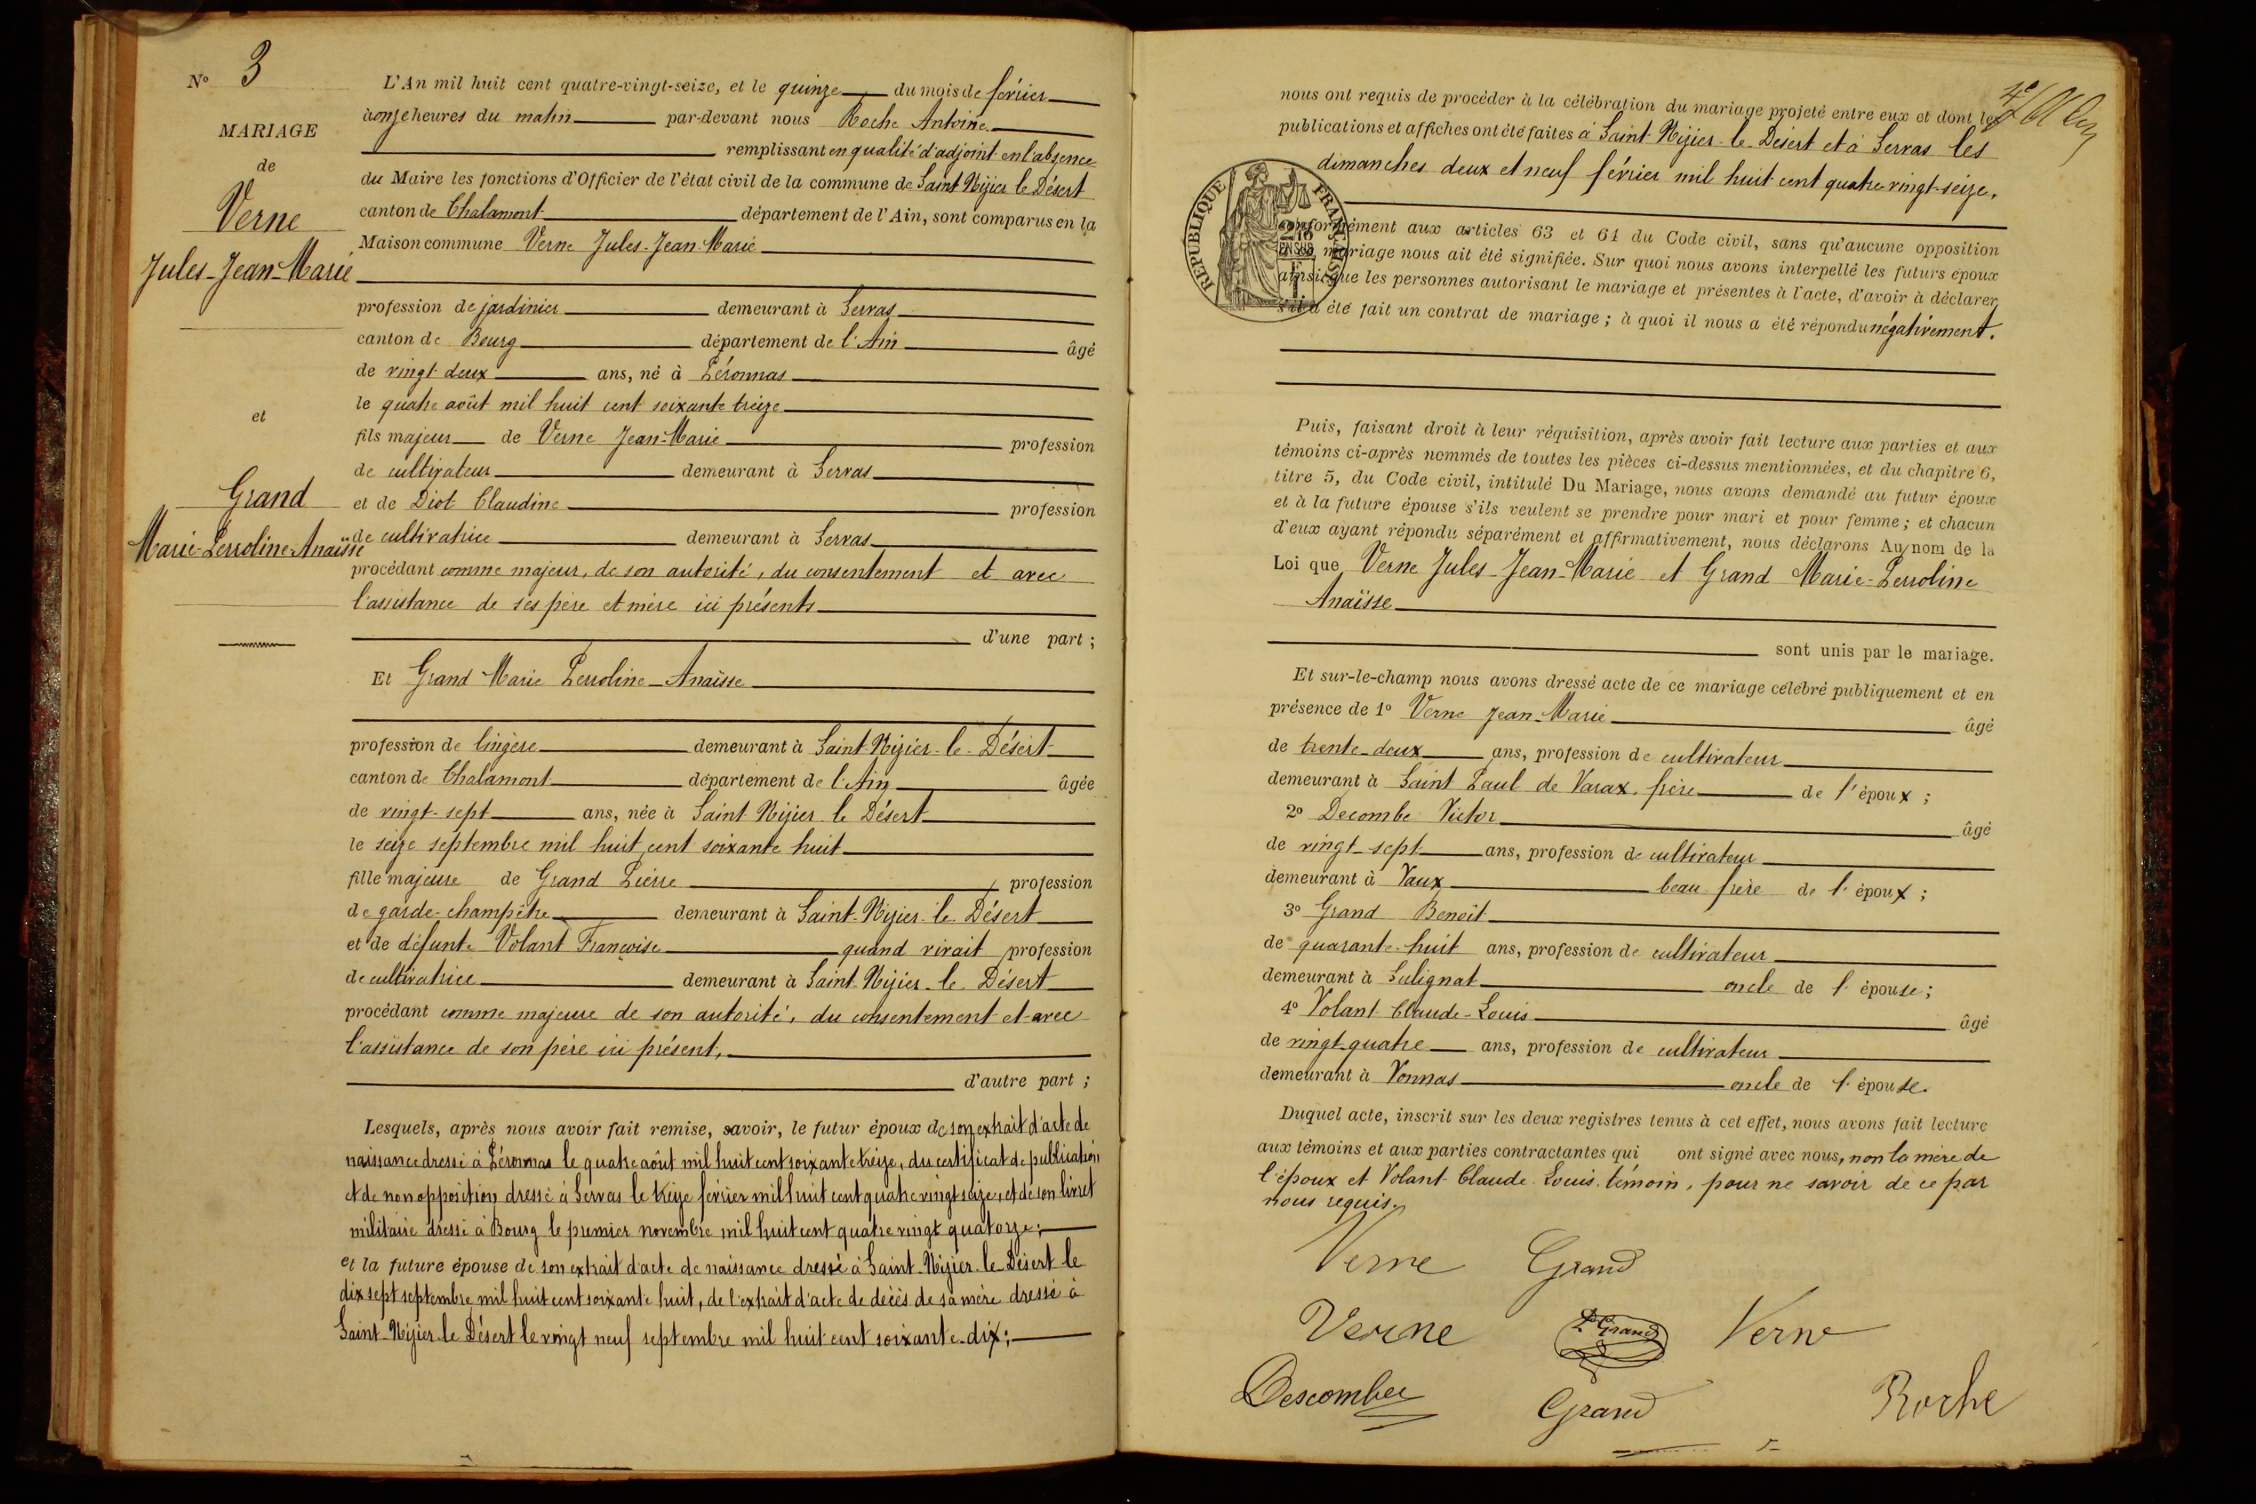 N° 3
MARIAGE
de
Verne
Jules-Jean-Marie
et
Grand
Marie-Perroline-Anaïsse
L'An mil huit cent quatre-vingt-seize, et le quinze du mois de février
à onze heures du matin par-devant nous Roche Antoine
remplissant en qualité d'adjoint en l'absence
du Maire les fonctions d'Officier de l'état civil de la commune de Saint Nizier le Désert
canton de Chalamont département de l'Ain, sont comparus en la
Maison commune Verne Jules-Jean-Marie
profession de jardinier demeurant à Servas
canton de Bourg département de l'Ain âgé
de vingt-deux ans, né à Péronnas
le quatre août mil huit cent soixante treize
fils majeur de Verne Jean-Marie profession
de cultivateur demeurant à Servas
et de Diot Claudine profession
de cultivatrice demeurant à Servas
procédant comme majeur, de son autorité, du consentement et avec
l'assistance de ses père et mère ici présents
d'une part ;
Et Grand Marie Perroline-Anaïsse
profession de lingère demeurant à Saint-Nizier-le-Désert
canton de Chalamont département de l'Ain âgée
de vingt-sept ans, née à Saint Nizier le Désert
le seize septembre mil huit cent soixante huit
fille majeure de Grand Pierre profession
de garde-champêtre demeurant à Saint-Nizier-le-Désert
et de défunte Volant Françoise quand vivait profession
de cultivatrice demeurant à Saint-Nizier-le-Désert
procédant comme majeure de son autorité, du consentement et avec
l'assistance de son père ici présent,
d'autre part ;
Lesquels, après nous avoir fait remise, savoir, le futur époux de son extrait d'acte de
naissance dressé à Péronnas le quatre août mil huit cent soixante treize, du certificat de publication
et de non opposition dressé à Servas le treize février mil huit cent quatre vingt seize, et de son livret
militaire dressé à Bourg le premier novembre mil huit cent quatre vingt quatorze ;
et la future épouse de son extrait d'acte de naissance dressé à Saint-Nizier-le-Désert le
dix sept septembre mil huit cent soixante huit, de l'extrait d'acte de décès de sa mère dressé à
Saint-Nizier-le Désert le vingt neuf septembre mil huit cent soixante-dix ;
nous ont requis de procéder à la célébration du mariage projeté entre eux et dont les
publications et affiches ont été faites à Saint-Nizier-le-Désert et à Servas les
dimanches deux et neuf février mil huit cent quatre vingt-seize.
RÉPUBLIQUE FRANÇAISE
conformément aux articles 63 et 64 du Code civil, sans qu'aucune opposition
au mariage nous ait été signifiée. Sur quoi nous avons interpellé les futurs époux
ainsi que les personnes autorisant le mariage et présentes à l'acte, d'avoir à déclarer
s'il a été fait un contrat de mariage ; à quoi il nous a été répondu négativement.
Puis, faisant droit à leur réquisition, après avoir fait lecture aux parties et aux
témoins ci-après nommés de toutes les pièces ci-dessus mentionnées, et du chapitre 6,
titre 5, du Code civil, intitulé Du Mariage, nous avons demandé au futur époux
et à la future épouse s'ils veulent se prendre pour mari et pour femme ; et chacun
d'eux ayant répondu séparément et affirmativement, nous déclarons Au nom de la
Loi que Verne Jules-Jean-Marie et Grand Marie-Perroline
Anaïsse
sont unis par le mariage.
Et sur-le-champ nous avons dressé acte de ce mariage célébré publiquement et en
présence de 1° Verne Jean-Marie âgé
de trente-deux ans, profession de cultivateur
demeurant à Saint Paul de Varax, frère de l'époux ;
2° Decombe Victor âgé
de vingt-sept ans, profession de cultivateur
demeurant à Vaux beau frère de l'époux ;
3° Grand Benoit
de quarante-huit ans, profession de cultivateur
demeurant à Sulignat oncle de l'épouse ;
4° Volant Claude-Louis âgé
de vingt quatre ans, profession de cultivateur
demeurant à Vonnas oncle de l'épouse.
Duquel acte, inscrit sur les deux registres tenus à cet effet, nous avons fait lecture
aux témoins et aux parties contractantes qui ont signé avec nous, non la mère de
l'époux et Volant Claude Louis témoin, pour ne savoir de ce par
nous requis.
Verne Grand
Verne P Grand Verne
Descombes Grand Roche